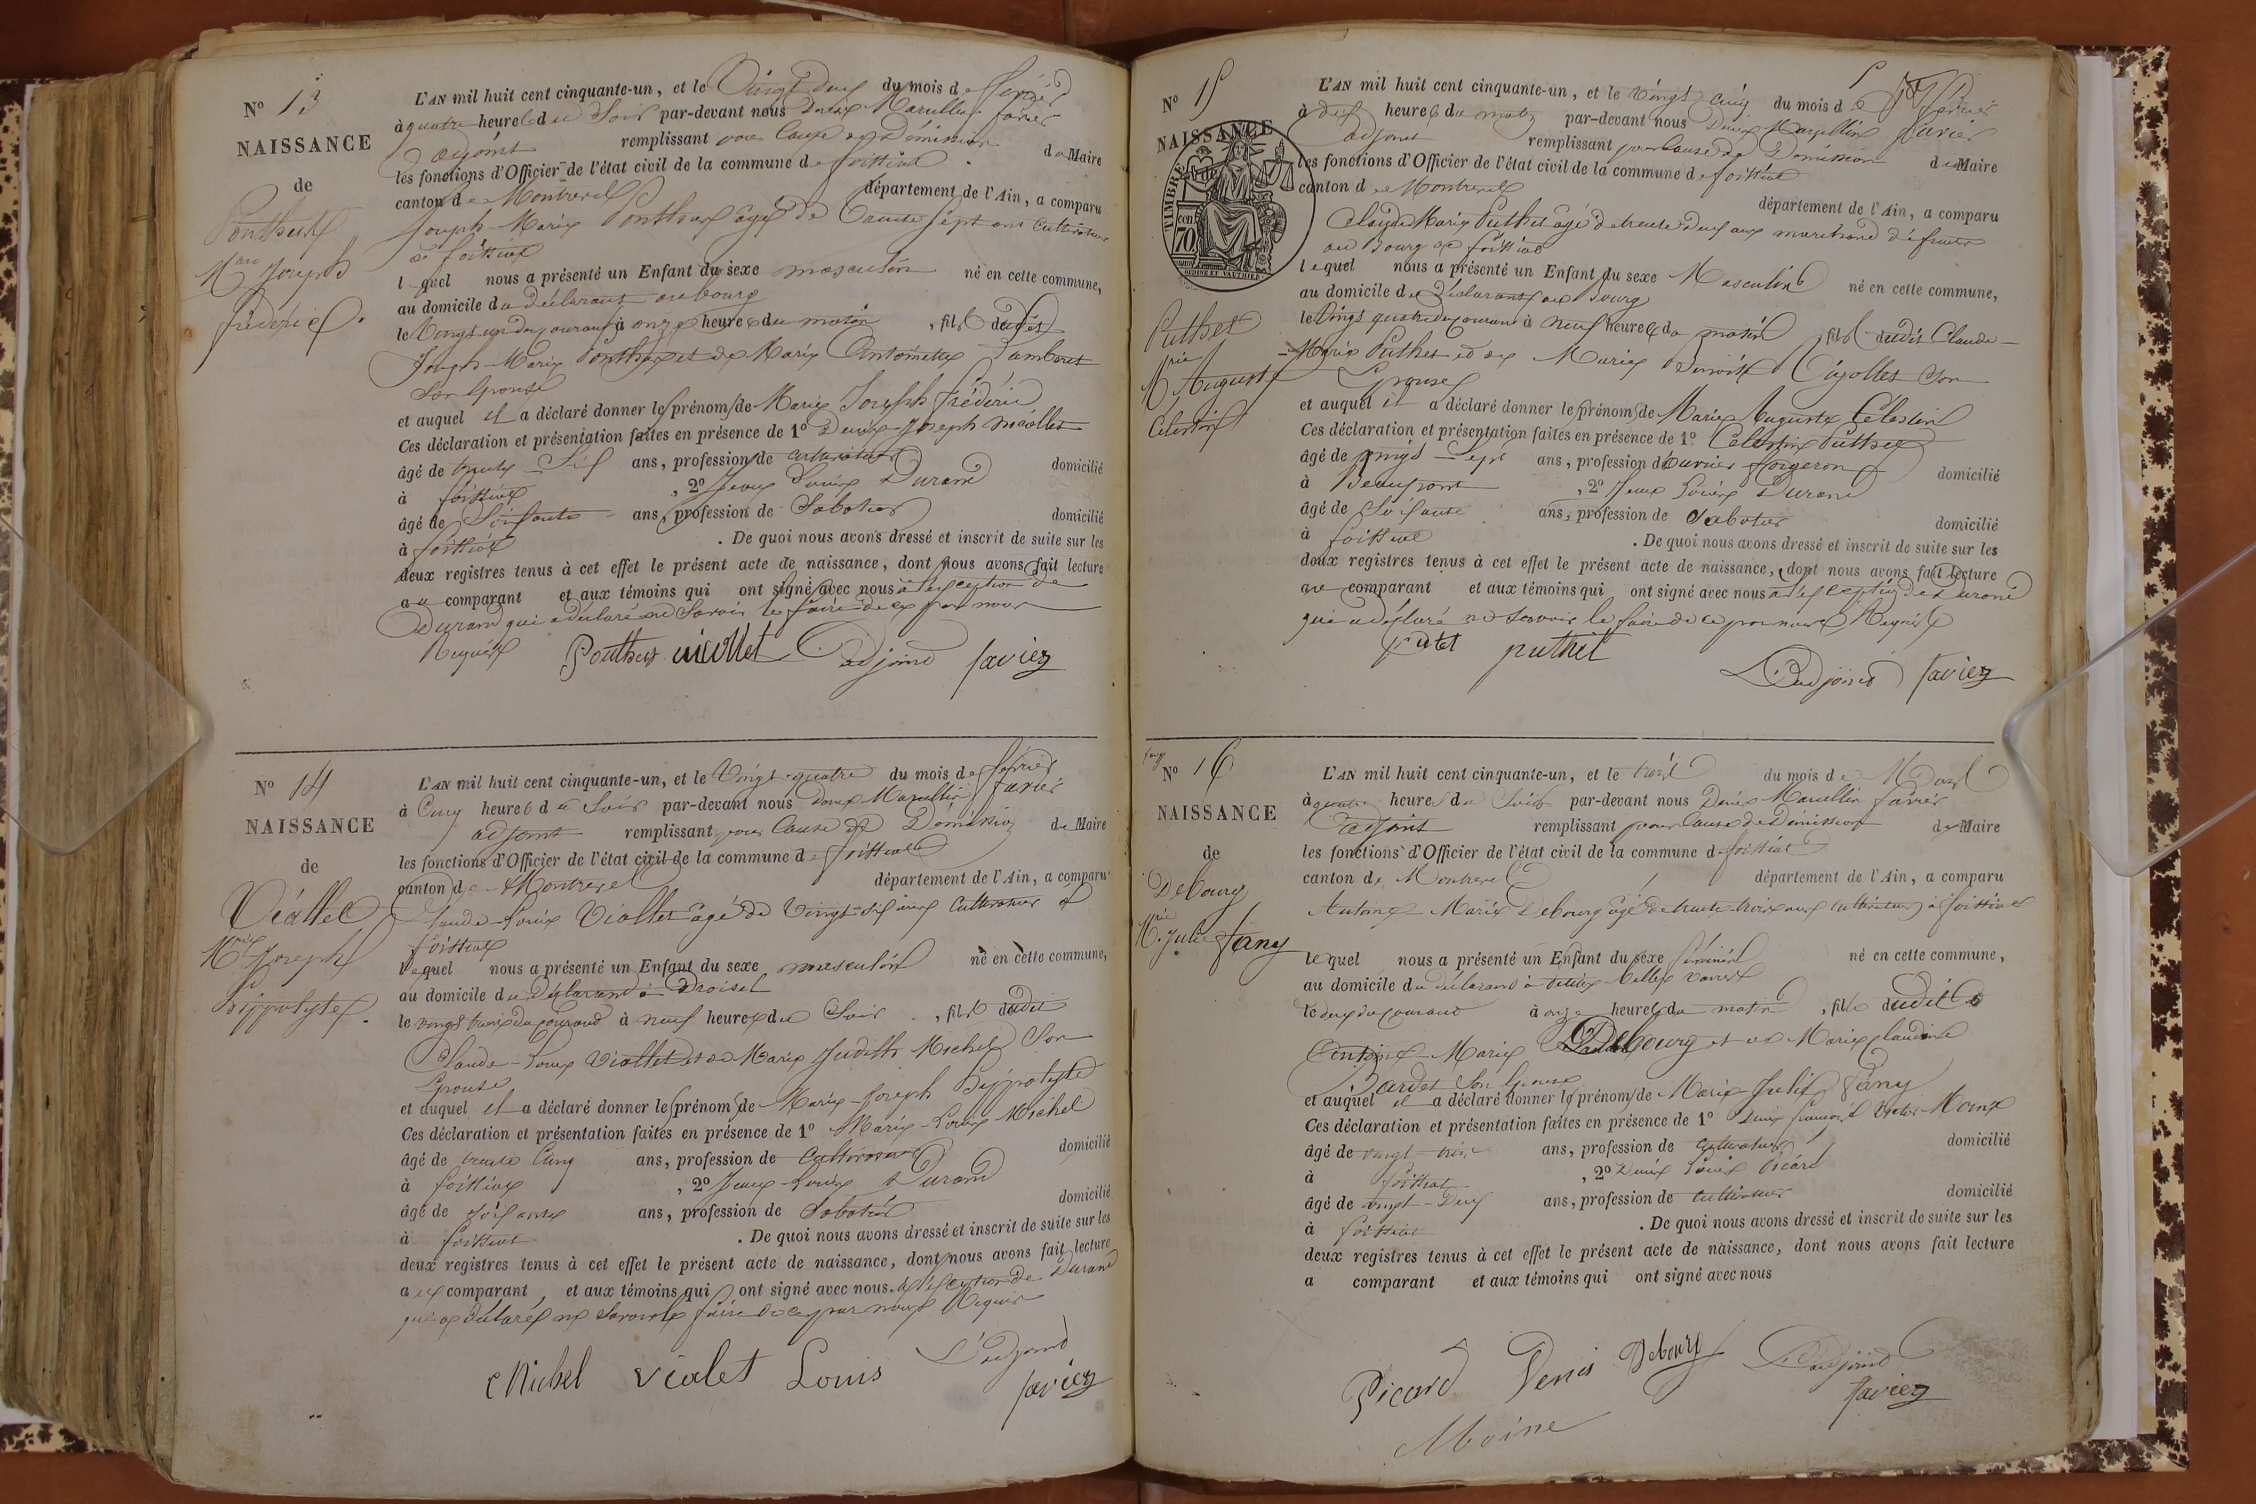 N° 13
NAISSANCE
de
Ponthus
Mrie Joseph
frédéric.
L'AN mil huit cent cinquante-un, et le Vingt deux du mois de février
à quatre heures du Soir par-devant nous Denis Marcellin favier
adjoint remplissant pour Cause de Démission du Maire
les fonctions d'Officier de l'état civil de la commune de foissiat
canton de Montrevel département de l'Ain, a comparu
Joseph-Marie Ponthus âgé de trente sept ans cultivateur
à foissiat
lequel nous a présenté un Enfant du sexe masculin né en cette commune,
au domicile du déclarant au bourg
le Vingt un du courant à onze heures du matin, fils dudit
Joseph-Marie Ponthus et de Marie Antoinette
Son Epouse
et auquel il a déclaré donner les prénoms de Marie Joseph frédéric
Ces déclaration et présentation faites en présence de 1° Denis-Joseph nicollet
âgé de trente-Six ans, profession de cultivateur domicilié
à foissiat, 2° Jean Louis Durand
âgé de Soixante ans, profession de Sabotier domicilié
à foissiat. De quoi nous avons dressé et inscrit de suite sur les
deux registres tenus à cet effet le présent acte de naissance, dont nous avons fait lecture
au comparant et aux témoins qui ont signé avec nous à l'exception de
Durand qui a déclaré ne Savoir le faire de ce par nous
Requis Ponthus nicollet L'adjoint favier
N° 14
NAISSANCE
de
Viallet
Mrie Joseph
hippolyte.
L'AN mil huit cent cinquante-un, et le Vingt-quatre du mois de février
à Cinq heures du Soir par-devant nous Denis Marcellin favier
adjoint remplissant pour Cause de Démission du Maire
les fonctions d'Officier de l'état civil de la commune de foissiat
canton de Montrevel département de l'Ain, a comparu
Claude-Louis Viallet âgé de Vingt-six ans Cultivateur à
foissiat
lequel nous a présenté un Enfant du sexe masculin né en cette commune,
au domicile du déclarant à
le vingt trois du courant à neuf heures du Soir, fils dudit
Claude-Louis Viallet et de Marie Judith Michel Son
Epouse
et auquel il a déclaré donner les prénoms de Marie-Joseph hippolyte
Ces déclaration et présentation faites en présence de 1° Marie-Louis Michel
âgé de trente Cinq ans, profession de Cultivateur domicilié
à foissiat, 2° Jean-Louis Durand
âgé de Soixante ans, profession de Sabotier domicilié
à foissiat. De quoi nous avons dressé et inscrit de suite sur les
deux registres tenus à cet effet le présent acte de naissance, dont nous avons fait lecture
aux comparant et aux témoins qui ont signé avec nous à l'exception de Durand
qui a déclaré ne Savoir le faire de ce par nous Requis
Michel vialet Louis L'adjoint favier
N° 15
NAISSANCE
de
TIMBRE
cen
70
OUDINÉ ET VAUTHIER
Puthet
Mrie Auguste
Celestin
L'AN mil huit cent cinquante-un, et le Vingt cinq du mois de février
à dix heures du matin par-devant nous Denis Marcellin favier
adjoint remplissant pour Cause de Démission du Maire
les fonctions d'Officier de l'état civil de la commune de foissiat
canton de Montrevel département de l'Ain, a comparu
Claude Marie Puthet âgé de trente deux ans marchand
au bourg de foissiat
lequel nous a présenté un Enfant du sexe Masculin né en cette commune,
au domicile du déclarant au bourg
le Vingt quatre du courant à neuf heures du matin, fils dudit Claude-
Marie Puthet et de Marie Benoite Son
Epouse
et auquel il a déclaré donner les prénoms de Marie Auguste Célestin
Ces déclaration et présentation faites en présence de 1° Célestin Puthet
âgé de vingt-Sept ans, profession d'ouvrier forgeron domicilié
à Beaupont, 2° Jean Louis Durand
âgé de Soixante ans, profession de Sabotier domicilié
à foissiat. De quoi nous avons dressé et inscrit de suite sur les
deux registres tenus à cet effet le présent acte de naissance, dont nous avons fait lecture
au comparant et aux témoins qui ont signé avec nous à l'exception de Durand
qui a déclaré ne Savoir le faire de ce par nous Requis
puthet L'adjoint favier
fany
N° 16
NAISSANCE
de
Debourg
Mrie Julie fany
L'AN mil huit cent cinquante-un, et le trois du mois de Mars
à quatre heures du Soir par-devant nous Denis Marcellin favier
adjoint remplissant pour Cause de Démission du Maire
les fonctions d'Officier de l'état civil de la commune de foissiat
canton de Montrevel département de l'Ain, a comparu
Antoine Marie Debourg âgé de trente-trois ans cultivateur à foissiat
lequel nous a présenté un Enfant du sexe féminin né en cette commune,
au domicile du déclarant à
le deux du courant à onze heures du matin, fille dudit
Antoine-Marie Debourg et de Marie Claudine
Bardet Son Epouse
et auquel il a déclaré donner les prénoms de Marie-Julie fany
Ces déclaration et présentation faites en présence de 1° Denis françois Victor Moine
âgé de vingt-trois ans, profession de Cultivateur domicilié
à foissiat, 2° Denis Louis Picard
âgé de vingt-Deux ans, profession de cultivateur domicilié
à foissiat. De quoi nous avons dressé et inscrit de suite sur les
deux registres tenus à cet effet le présent acte de naissance, dont nous avons fait lecture
a comparant et aux témoins qui ont signé avec nous
Picard Denis Debourg L'adjoint favier
Moine